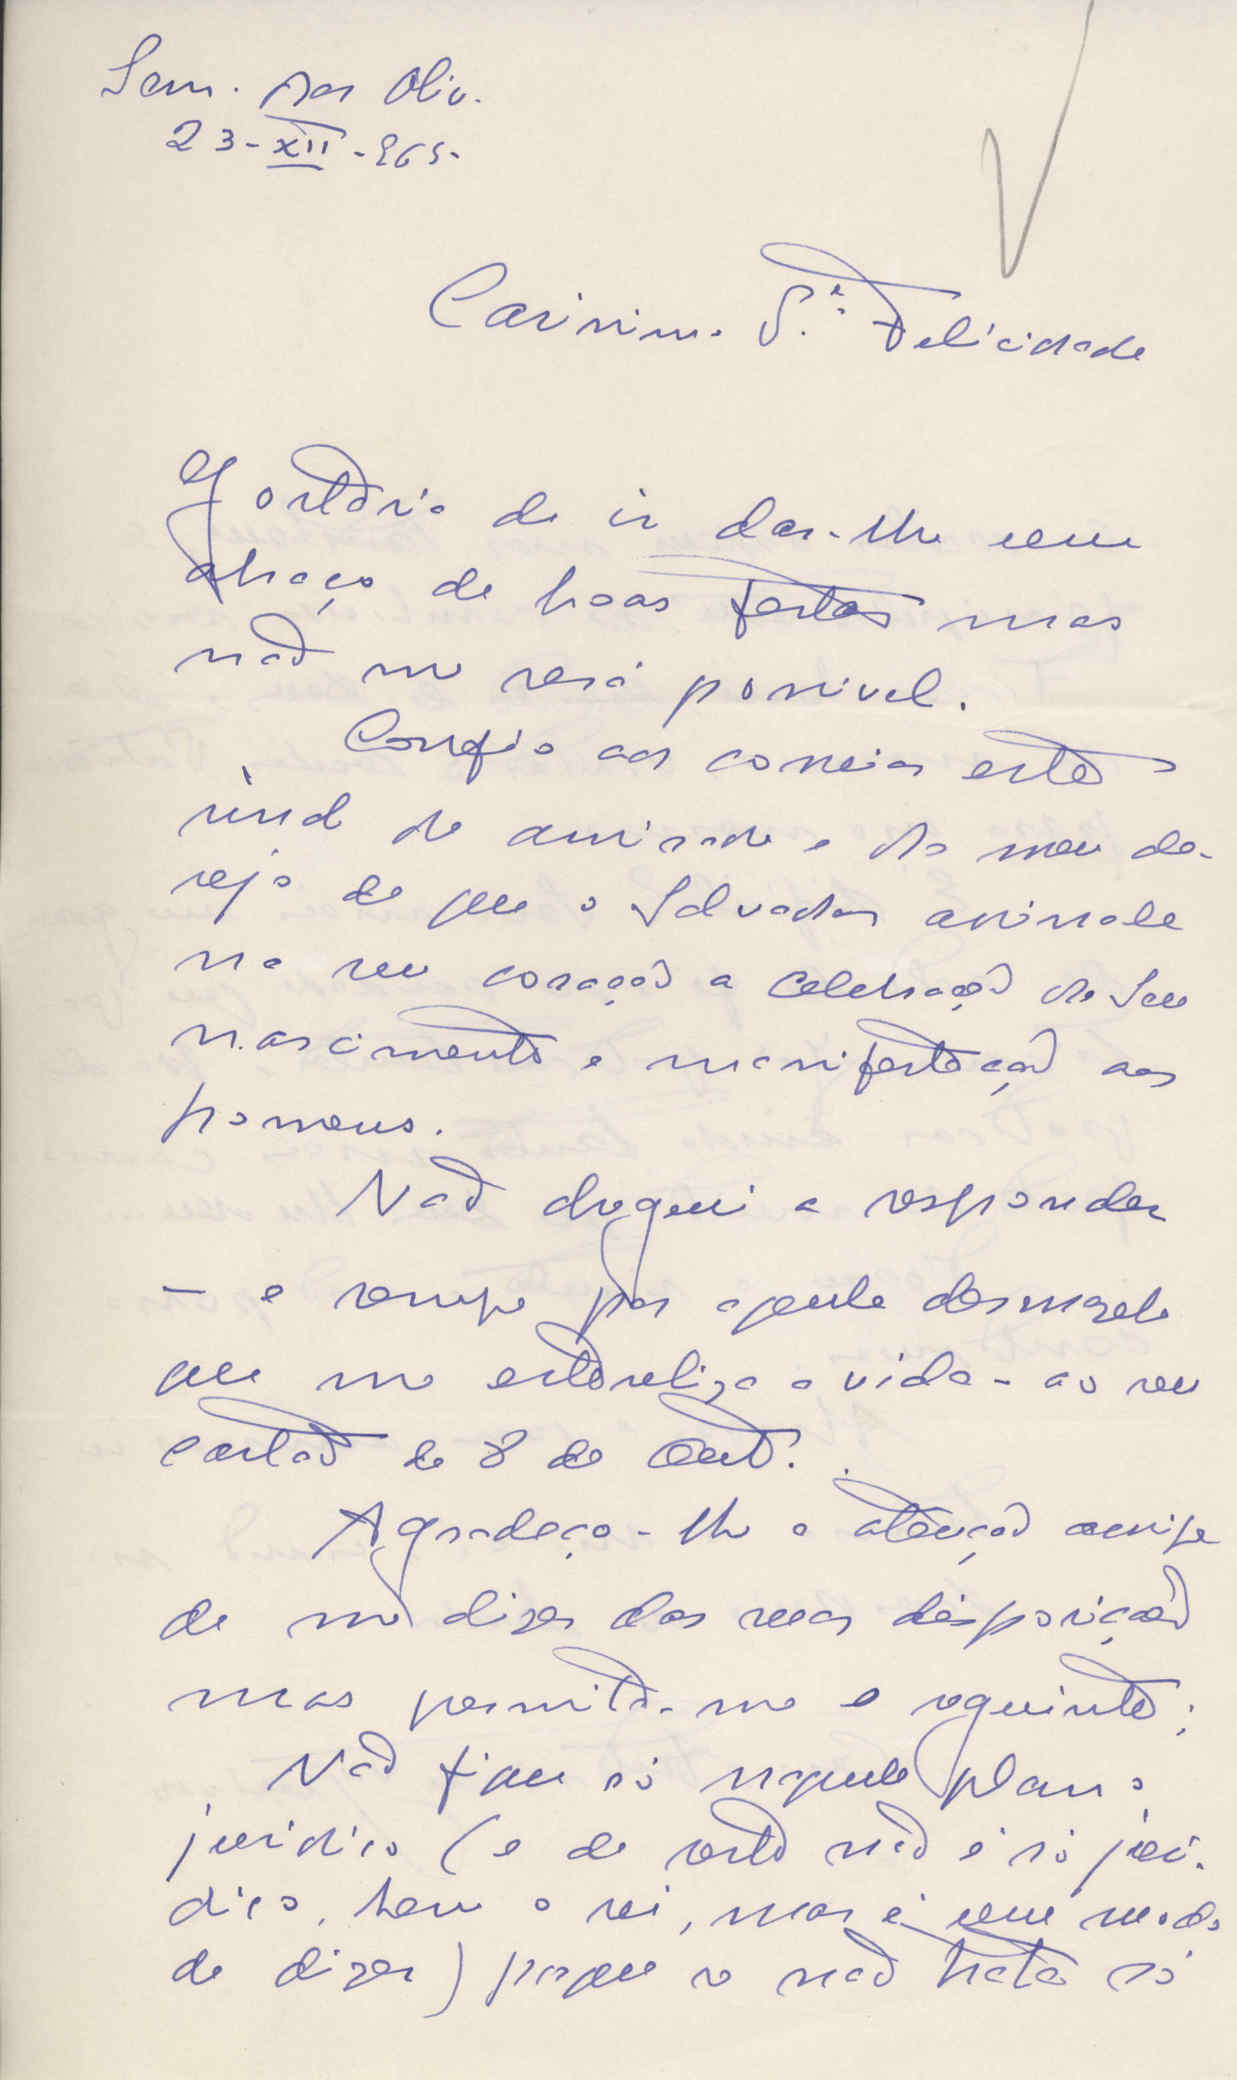 Sem. dos Oliv.
23-XII-965-
Caríssima S.ra Felicidade
Gostaria de ir dar-lhe um
abraço de boas festas mas
não me será possível.
Confio aos correios este
sinal de amizade e do meu de-
sejo de que o Salvador assinale
no seu coração a celebração do Seu
nascimento e manifestação aos
homens.
Não cheguei a responder
— e sempre por aquele desmazelo
que me esteriliza a vida - ao seu
cartão de 8 de Out.
Agradeço-lhe a atenção amiga
de me dizer das suas disposição
mas permita-me o seguinte:
Não fique só naquele plano
jurídico (e de resto não é só jurí-
dico, bem o sei, mas é um modo
de dizer) porque se não trata só